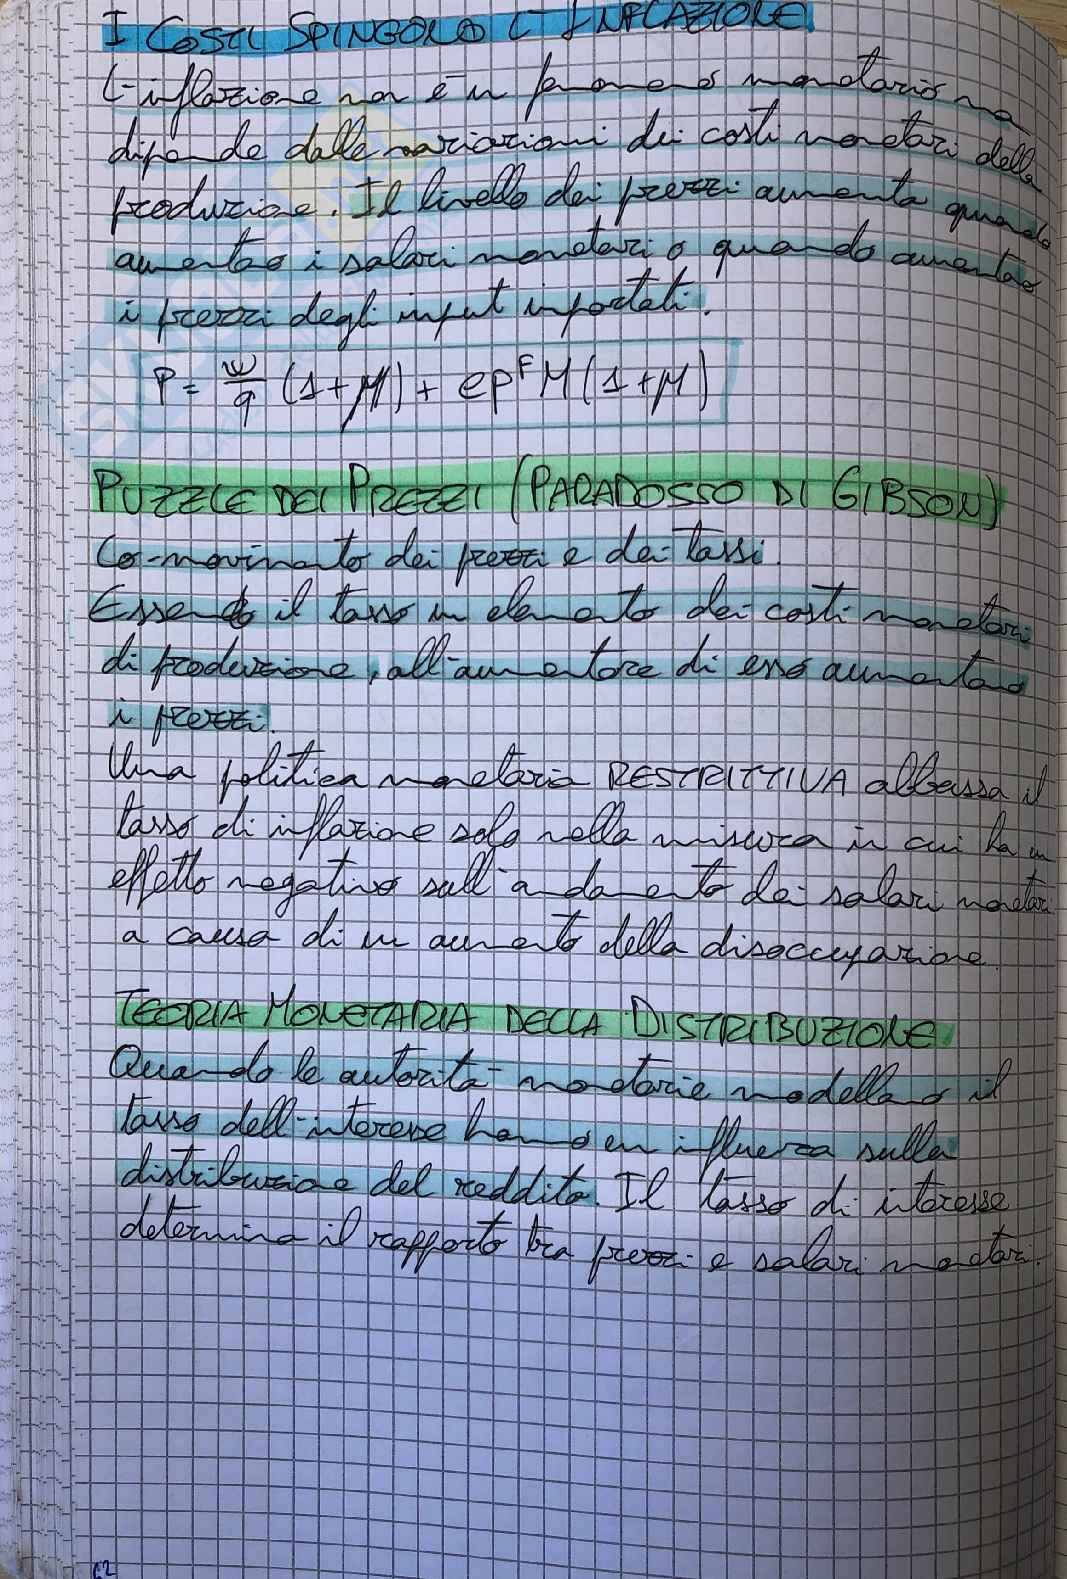 I COSTI SPINGONO L'INFLAZIONE
L'inflazione non è un fenomeno monetario ma
dipende dalle variazioni dei costi monetari della
produzione. Il livello dei prezzi aumenta quando
aumentano i salari monetari o quando aumentano
i prezzi degli input importati.
P = w/q (1+μ) + ep^F M (1+μ)
PUZZLE DEI PREZZI (PARADOSSO DI GIBSON)
Co-movimento dei prezzi e dei tassi.
Essendo il tasso un elemento dei costi monetari
di produzione, all'aumentare di esso aumentano
i prezzi.
Una politica monetaria RESTRITTIVA abbassa il
tasso di inflazione solo nella misura in cui ha un
effetto negativo sull'andamento dei salari monetari
a causa di un aumento della disoccupazione.
TEORIA MONETARIA DELLA DISTRIBUZIONE
Quando le autorità monetarie modellano il
tasso dell'interesse hanno un influenza sulla
distribuzione del reddito. Il tasso di interesse
determina il rapporto tra prezzi e salari monetari.
62